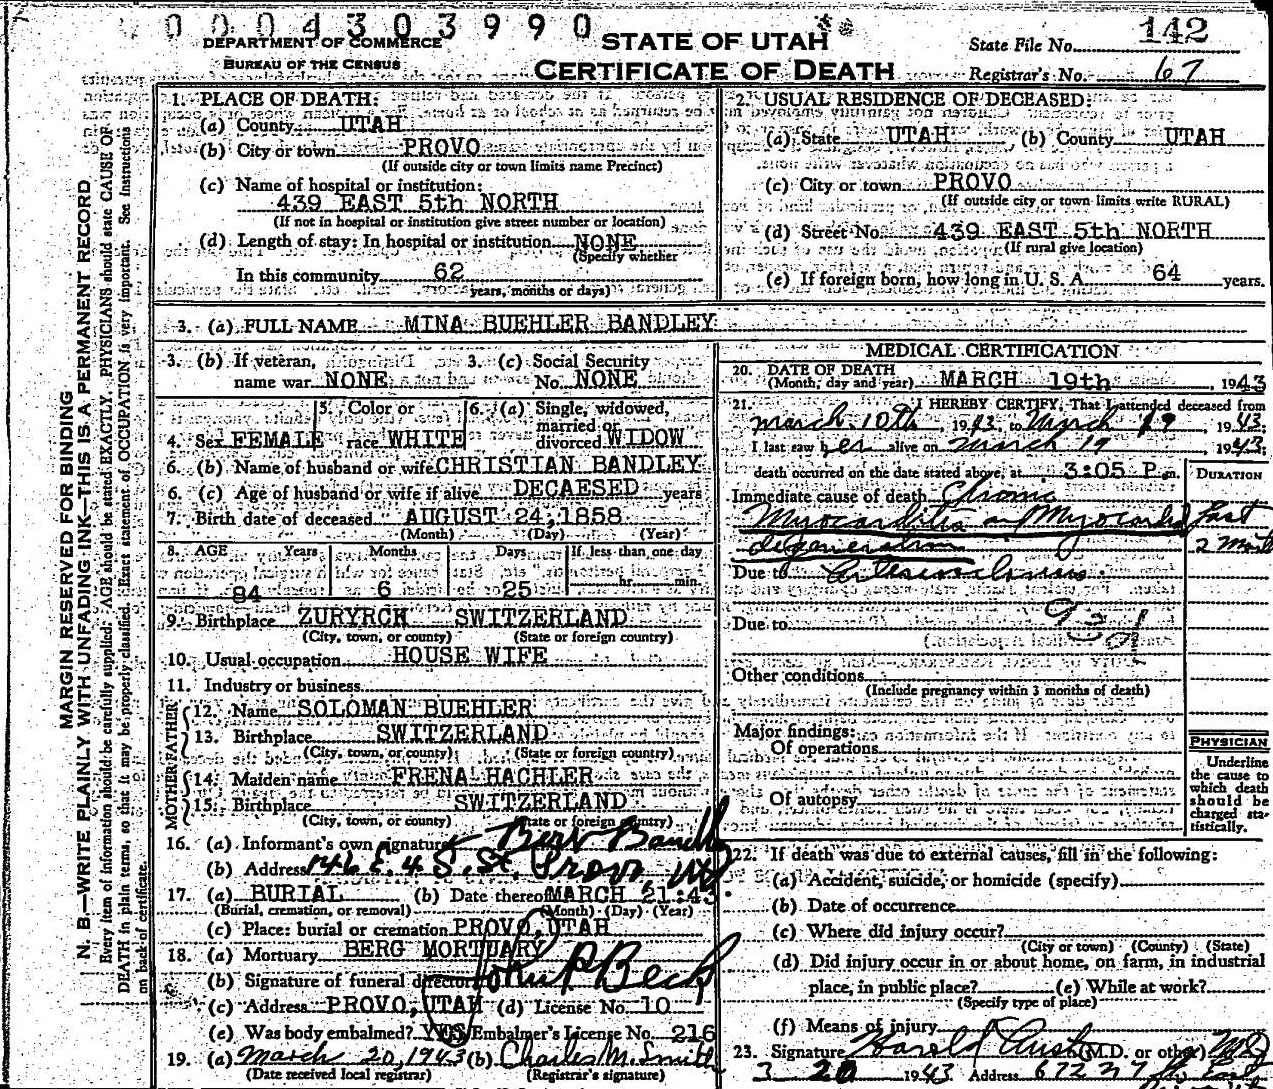 0 0 0 4 3 0 3 9 9 0
DEPARTMENT OF COMMERCE
BUREAU OF THE CENSUS
STATE OF UTAH
CERTIFICATE OF DEATH
State File No. 142
Registrar's No. 67
MARGIN RESERVED FOR BINDING
N. B.—WRITE PLAINLY WITH UNFADING INK—THIS IS A PERMANENT RECORD
Every item of information should be carefully supplied. AGE should be stated EXACTLY. PHYSICIANS should state CAUSE OF
DEATH in plain terms, so that it may be properly classified. Exact statement of OCCUPATION is very important. See Instructions
on back of certificate.
1. PLACE OF DEATH:
(a) County UTAH
(b) City or town PROVO
(If outside city or town limits name Precinct)
(c) Name of hospital or institution:
439 EAST 5th NORTH
(If not in hospital or institution give street number or location)
(d) Length of stay: In hospital or institution NONE
(Specify whether
In this community 62
years, months or days)
2. USUAL RESIDENCE OF DECEASED:
(a) State UTAH (b) County UTAH
(c) City or town PROVO
(If outside city or town limits write RURAL)
(d) Street No. 439 EAST 5th NORTH
(If rural give location)
(e) If foreign born, how long in U. S. A. 64 years.
3. (a) FULL NAME MINA BUEHLER BANDLEY
3. (b) If veteran, name war NONE
3. (c) Social Security No. NONE
4. Sex FEMALE
5. Color or race WHITE
6. (a) Single, widowed, married or divorced WIDOW
6. (b) Name of husband or wife CHRISTIAN BANDLEY
6. (c) Age of husband or wife if alive DECAESED years
7. Birth date of deceased AUGUST 24, 1858
(Month) (Day) (Year)
8. AGE Years Months Days If less than one day
84 6 25 hr. min.
9. Birthplace ZURYRCH SWITZERLAND
(City, town, or county) (State or foreign country)
10. Usual occupation HOUSE WIFE
11. Industry or business
FATHER
12. Name SOLOMAN BUEHLER
13. Birthplace SWITZERLAND
(City, town, or county) (State or foreign country)
MOTHER
14. Maiden name FRENA HACHLER
15. Birthplace SWITZERLAND
(City, town, or county) (State or foreign country)
16. (a) Informant's own signature Bandley
(b) Address 146 E. 4 S. St. Provo, Ut
17. (a) BURIAL (b) Date thereof MARCH 21:43
(Burial, cremation, or removal) (Month) (Day) (Year)
(c) Place: burial or cremation PROVO, UTAH
18. (a) Mortuary BERG MORTUARY
(b) Signature of funeral director John P Beck
(c) Address PROVO, UTAH (d) License No. 10
(e) Was body embalmed? YES Embalmer's License No. 216
19. (a) March 20, 1943 (b) Charles M. Smith
(Date received local registrar) (Registrar's signature)
MEDICAL CERTIFICATION
20. DATE OF DEATH
(Month, day and year) MARCH 19th, 1943
21. I HEREBY CERTIFY, That I attended deceased from
March 10th, 1943, to March 19, 1943;
I last saw her alive on March 19, 1943;
death occurred on the date stated above, at 3:05 P.m.
DURATION
Immediate cause of death Chronic
Myocarditis and Myocardial
degeneration
Past
2 Months
Due to Arteriosclerosis.
Due to
93d
Other conditions
(Include pregnancy within 3 months of death)
Major findings:
Of operations
Of autopsy
PHYSICIAN
Underline
the cause to
which death
should be
charged sta-
tistically.
22. If death was due to external causes, fill in the following:
(a) Accident, suicide, or homicide (specify)
(b) Date of occurrence
(c) Where did injury occur?
(City or town) (County) (State)
(d) Did injury occur in or about home, on farm, in industrial
place, in public place? (e) While at work?
(Specify type of place)
(f) Means of injury
23. Signature Harold Austin (M.D. or other) MD
3 20 1943 Address